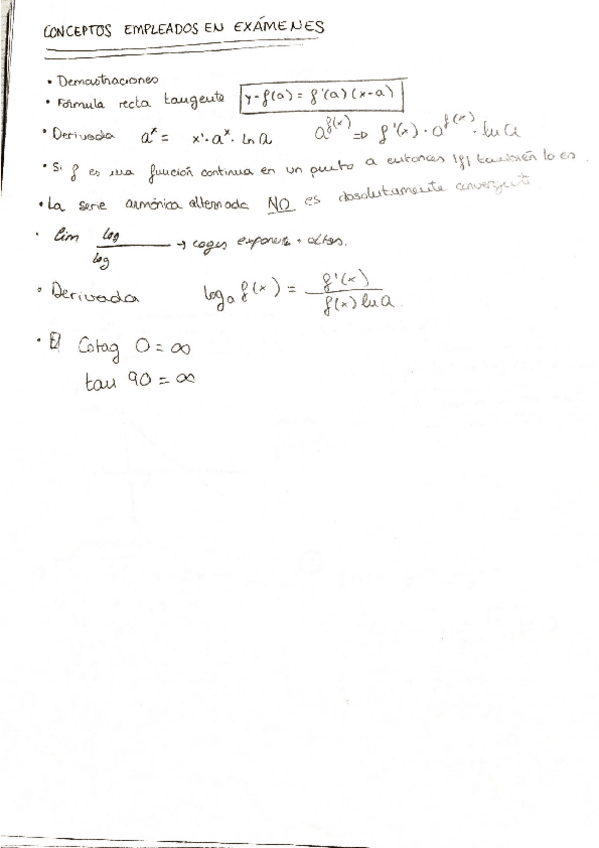 CONCEPTOS EMPLEADOS EN EXÁMENES
• Demostraciones
• Fórmula recta tangente y-f(a) = f'(a) (x-a)
• Derivada a^x = x'·a^x·ln a a^f(x) ⇒ f'(x)·a^f(x)·ln a
• Si f es una función continua en un punto a entonces |f| también lo es.
• La serie armónica alternada NO es absolutamente convergente
• lim log/log → coges exponente + altos.
• Derivada log_a f(x) = f'(x)/f(x) ln a
• El Cotag 0 = ∞
tan 90 = ∞